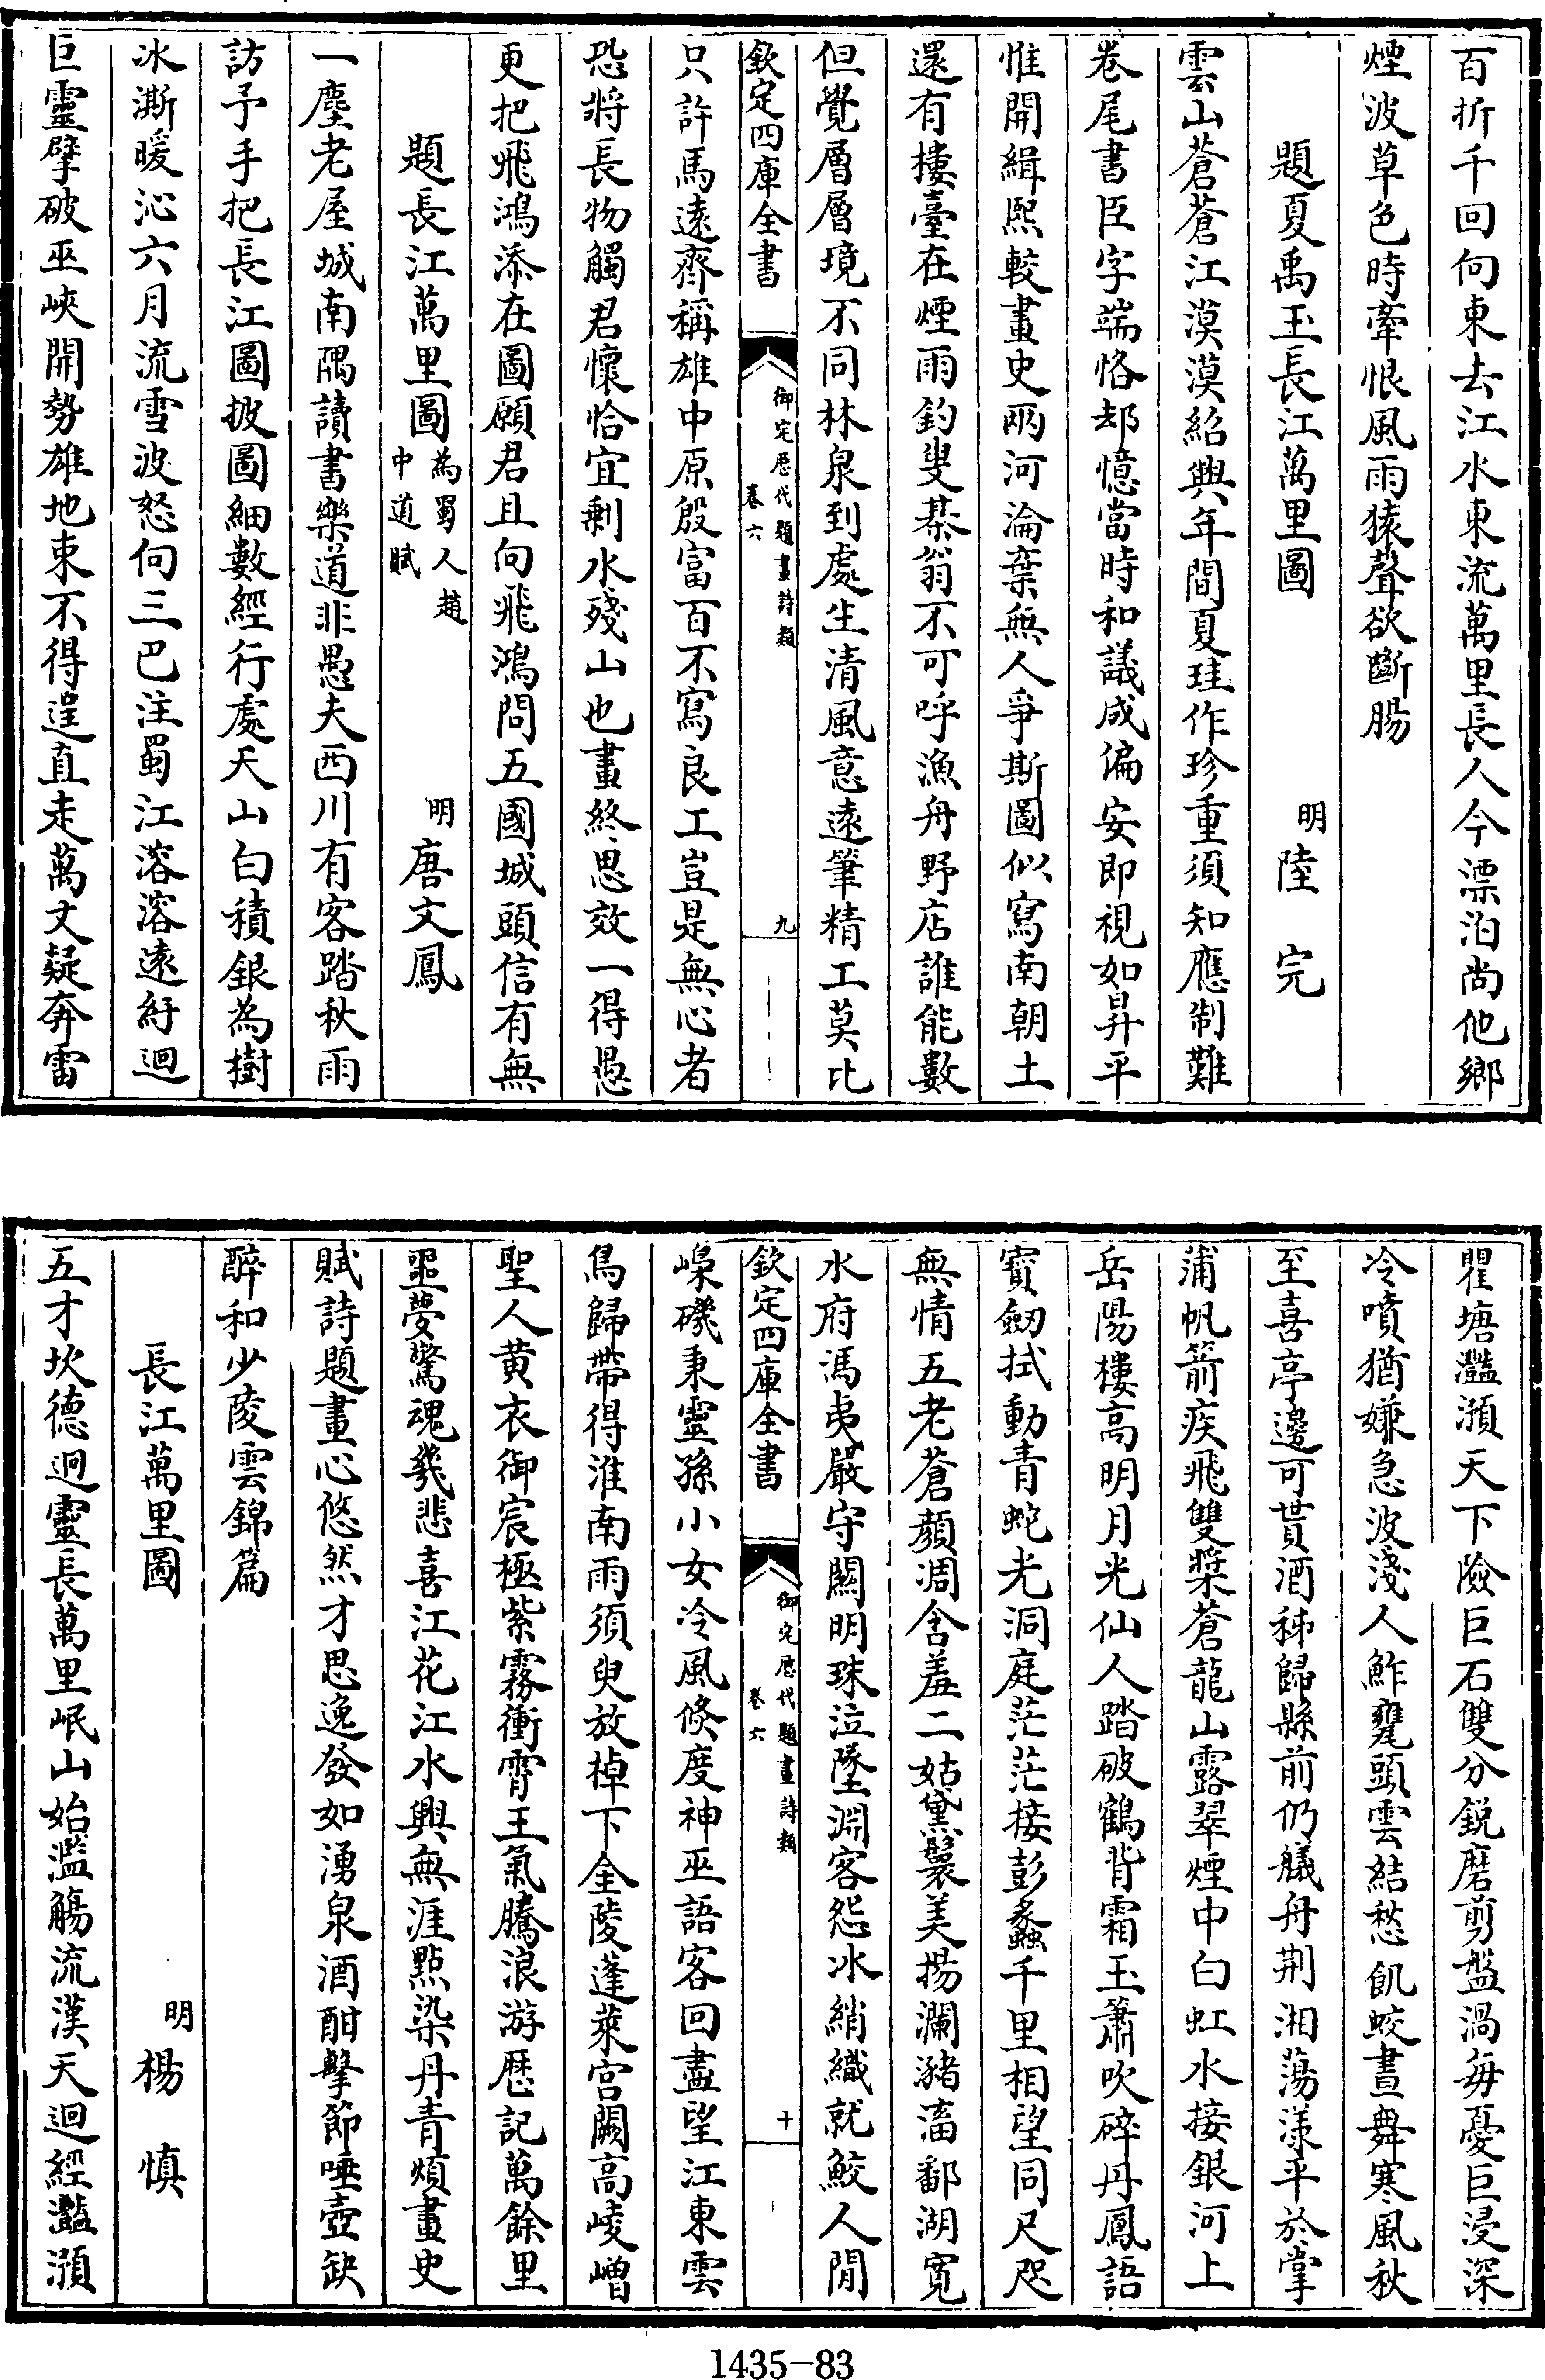 百折千回向東去江水東流萬里長人今漂泊尚他鄉
煙波草色時牽恨風雨猿聲欲斷腸
題夏禹玉長江萬里圖　明陸完
雲山蒼蒼江漠漠紹興年間夏珪作珍重須知應制難
卷尾書臣字端恪却憶當時和議成偏安即視如昇平
惟開緝熙較畫史兩河淪棄無人爭斯圖似寫南朝土
還有樓臺在煙雨釣叟棊翁不可呼漁舟野店誰能數
但覺層層境不同林泉到處生清風意遠筆精工莫比
欽定四庫全書　御定歷代題畫詩類卷六　九
只許馬遠齊稱雄中原殷富百不寫良工豈是無心者
恐將長物觸君懷恰宜剩水殘山也畫終思效一得愚
更把飛鴻添在圖願君且向飛鴻問五國城頭信有無
題長江萬里圖為蜀人趙中道賦　明唐文鳳
一塵老屋城南隅讀書樂道非愚夫西川有客踏秋雨
訪予手把長江圖披圖細數經行處天山白積銀為樹
冰澌暖沁六月流雪波怒向三巴注蜀江溶溶遠紆迴
巨靈擘破巫峽開勢雄地束不得逞直走萬丈疑奔雷
瞿塘灩澦天下險巨石雙分銳磨剪盤渦毎憂巨浸深
冷噴猶嫌急波淺人鮓甕頭雲結愁飢蛟晝舞寒風秋
至喜亭邊可貰酒秭歸縣前仍艤舟荆湘蕩漾平於掌
蒲帆箭疾飛雙槳蒼龍山露翠煙中白虹水接銀河上
岳陽樓高明月光仙人踏破鶴背霜玉簫吹碎丹鳳語
寶劒拭動青蛇光洞庭茫茫接彭蠡千里相望同尺咫
無情五老蒼顏凋含羞二姑黛鬟美揚瀾瀦滀鄱湖寛
水府馮夷嚴守關明珠泣墜淵客怨冰綃織就鮫人閒
欽定四庫全書　御定歷代題畫詩類卷六　十
嶫磯秉靈孫小女冷風倐度神巫語客回盡望江東雲
鳥歸帶得淮南雨須臾放棹下金陵蓬萊宮闕高崚嶒
聖人黄衣御宸極紫霧衝霄王氣騰浪游歷記萬餘里
噩夢驚魂幾悲喜江花江水興無涯點染丹青煩畫史
賦詩題畫心悠然才思逸發如湧泉酒酣擊節唾壺缺
醉和少陵雲錦篇
長江萬里圖　明楊慎
五才坎德迥靈長萬里岷山始濫觴流漢天迴經灩澦
1435-83